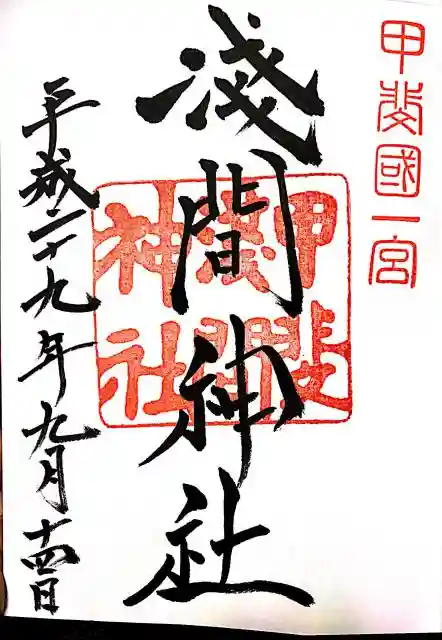 甲斐國一宮
淺間神社
甲斐
淺間
神社
平成二十九年九月十四日